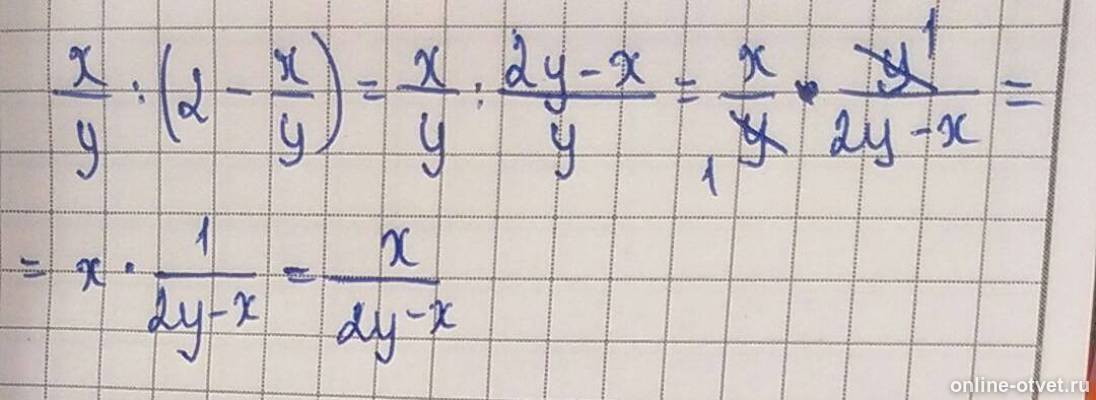 x/y : (2 - x/y) = x/y : (2y-x)/y = x/y · y/(2y-x) =
1 1
= x · 1/(2y-x) = x/(2y-x)
online-otvet.ru